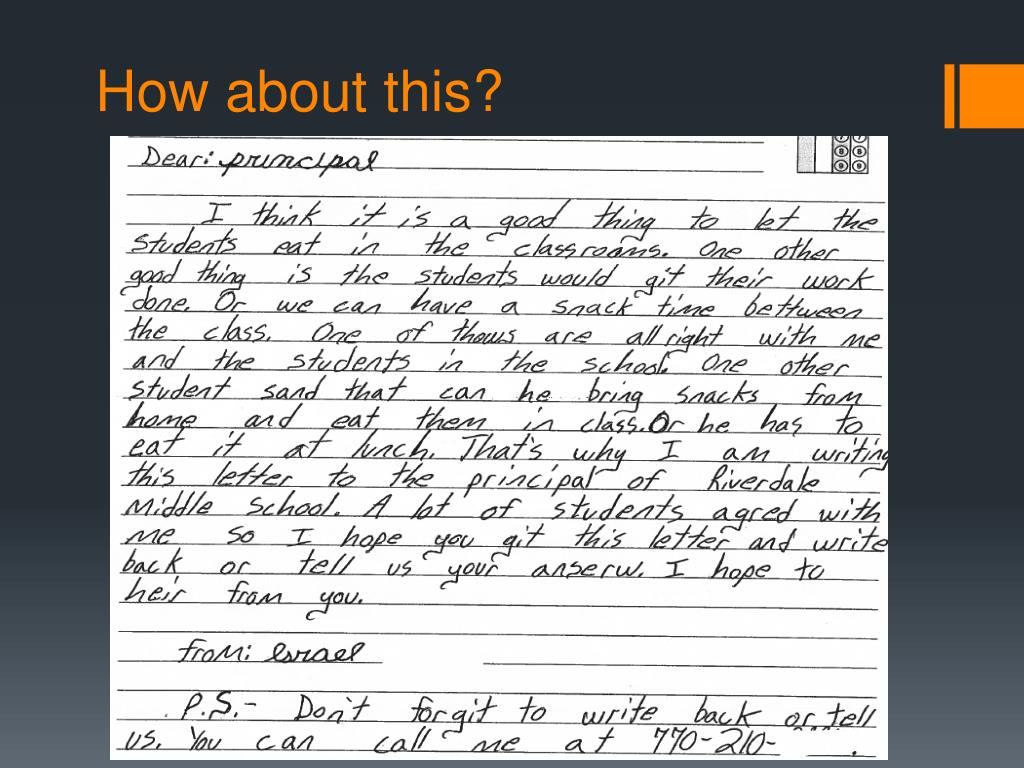 How about this?
Dear: principal
I think it is a good thing to let the
students eat in the classrooms. One other
good thing is the students would git their work
done. Or we can have a snack time bettween
the class. One of thows are all right with me
and the students in the school. One other
student sand that can he bring snacks from
home and eat them in class. Or he has to
eat it at lunch. That's why I am writing
this letter to the principal of Riverdale
Middle School. A lot of students agred with
me so I hope you git this letter and write
back or tell us your anserw. I hope to
heir from you.
from: Israel
P.S.- Don't forgit to write back or tell
us. You can call me at 770-210- .